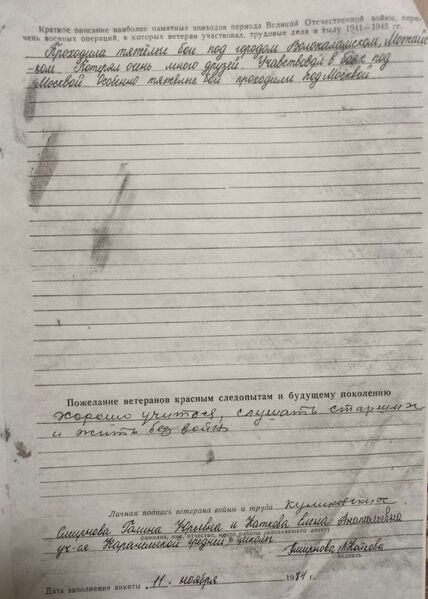 Краткое описание наиболее памятных эпизодов периода Великой Отечественной войны, пере-
чень военных операций, в которых ветеран участвовал, трудовые дела в тылу 1941—1945 гг.
Проходила тяжёлые бои под городом Волокаламском, Можайс
-ком. Потерял очень много друзей. Учавствовал в боях под
Москвой. Особенно тяжёлые бои проходили под Москвой
Пожелание ветеранов красным следопытам и будущему поколению
хорошо учиться, слушать старших
и жить без войны
Личная подпись ветерана войны и труда
Смирнова Галина Юрьевна и Каткова Елена Анатольевна
фамилия, имя, отчество, место работы заполнявшего анкету
уч-ся средней школы Смирнова Каткова
подпись
Дата заполнения анкеты 11 ноября 1981 г.